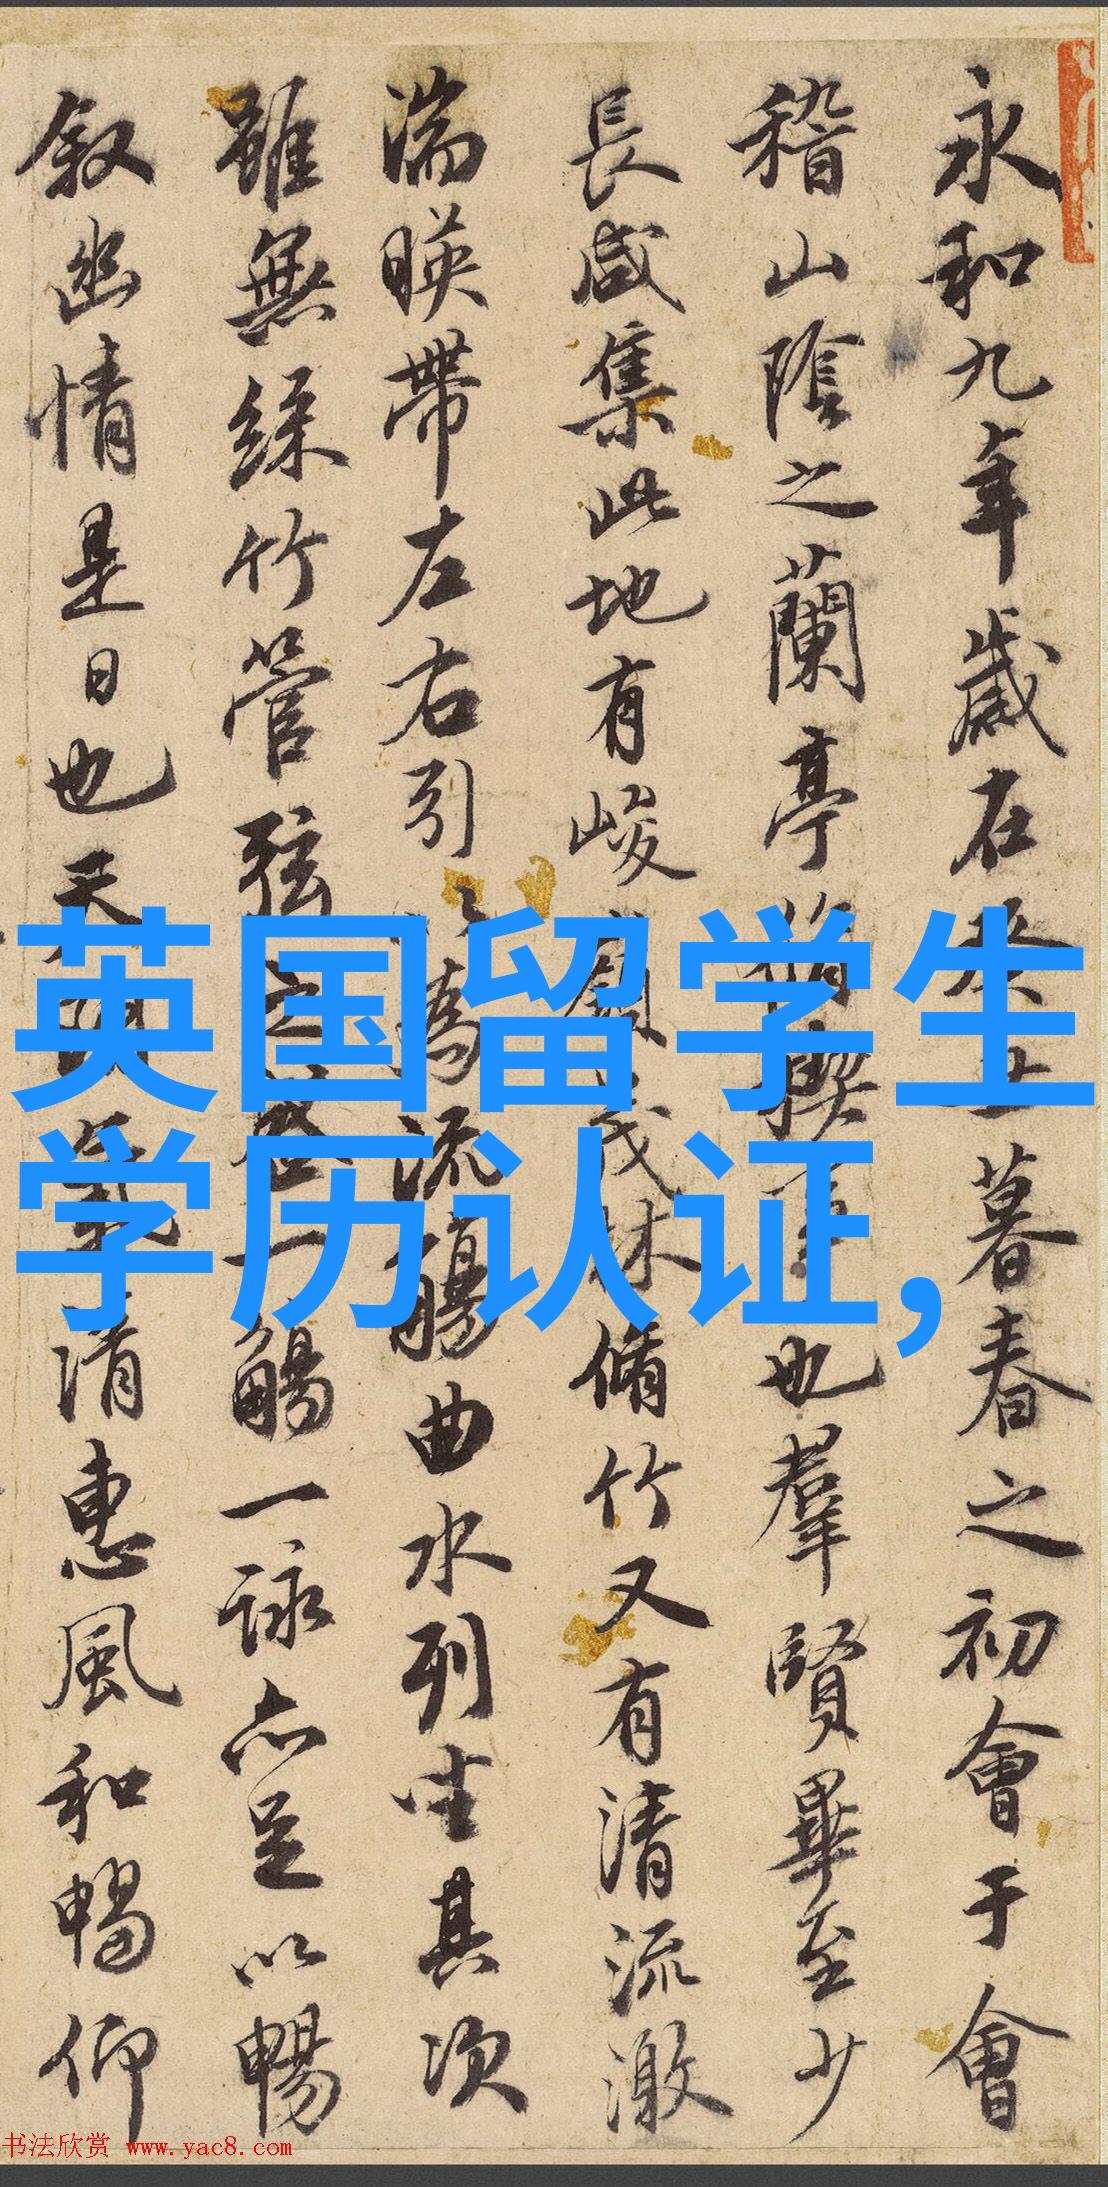 永和九年歲在癸丑暮春之初會于會
稽山陰之蘭亭脩禊事也羣賢畢至少
長咸集此地有峻領茂林脩竹又有清流激
湍暎帶左右引以為流觴曲水列坐其次
雖無絲竹管弦之盛一觴一詠亦足以暢
叙幽情是日也天朗氣清惠風和暢仰
英国留学生
学历认证,
书法欣赏 www.yac8.com